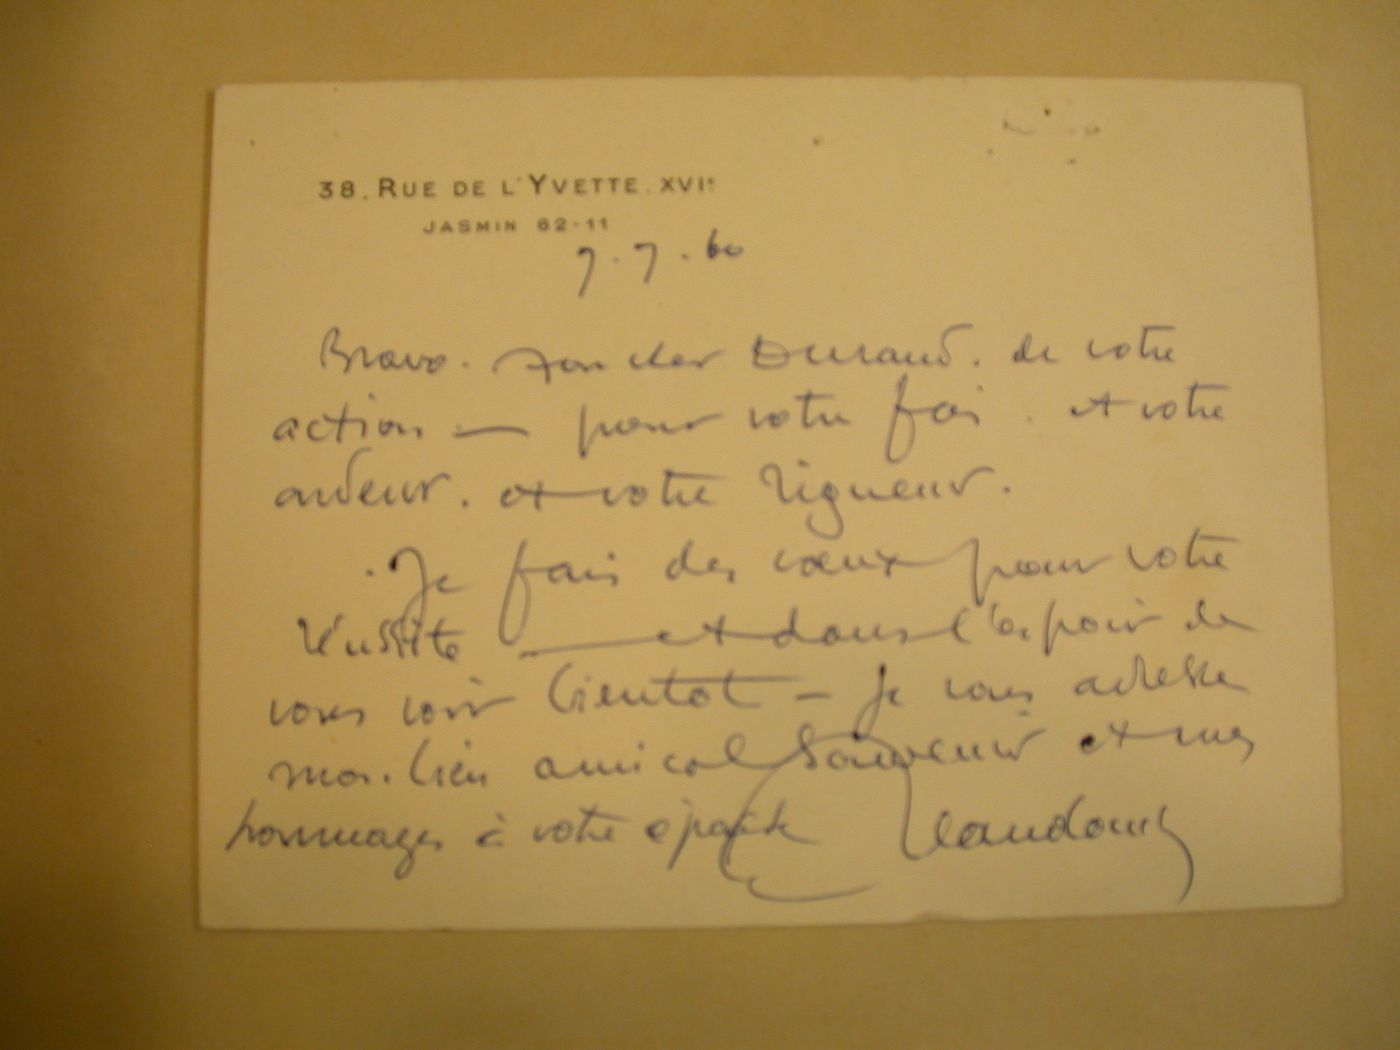 38. RUE DE L'YVETTE. XVIe
JASMIN 62-11
7.7.60
Bravo. mon cher Durand. de votre
action — pour votre foi. et votre
ardeur. et votre rigueur.
Je fais des vœux pour votre
réussite — et dans l'espoir de
vous voir bientot — je vous adresse
mon bien amical souvenir et mes
hommages à votre